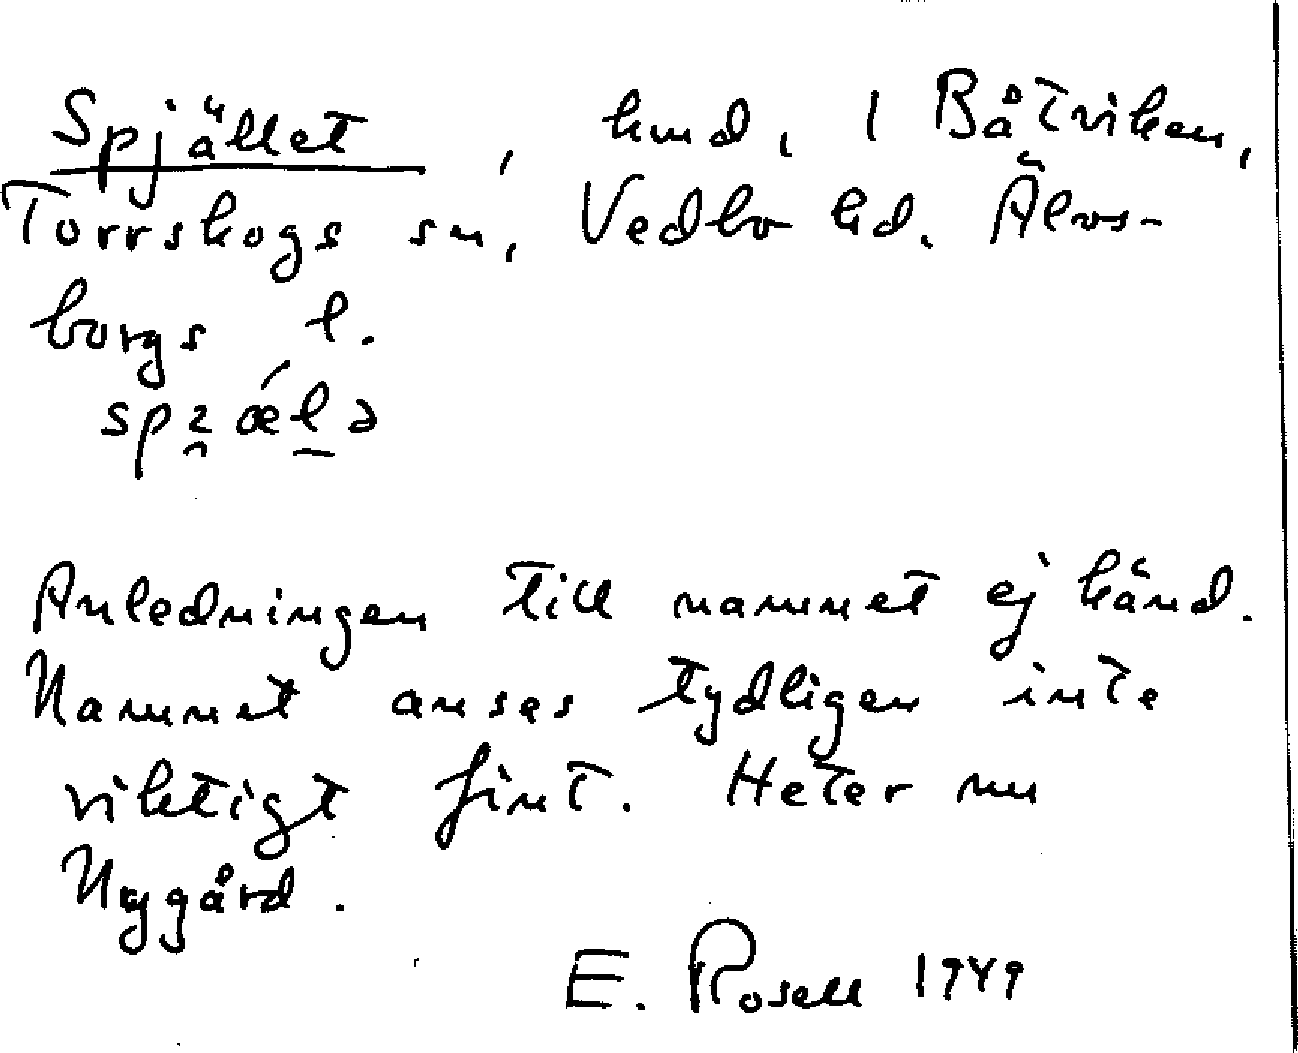 Spjället, hmd, i Båtviken,
Torrskogs sn, Vedbo hd. Älvs-
borgs l.
Anledningen till namnet ej känd.
Namnet anses tydligen inte
riktigt fint. Heter nu
Nygård.
E. Rosell 1949